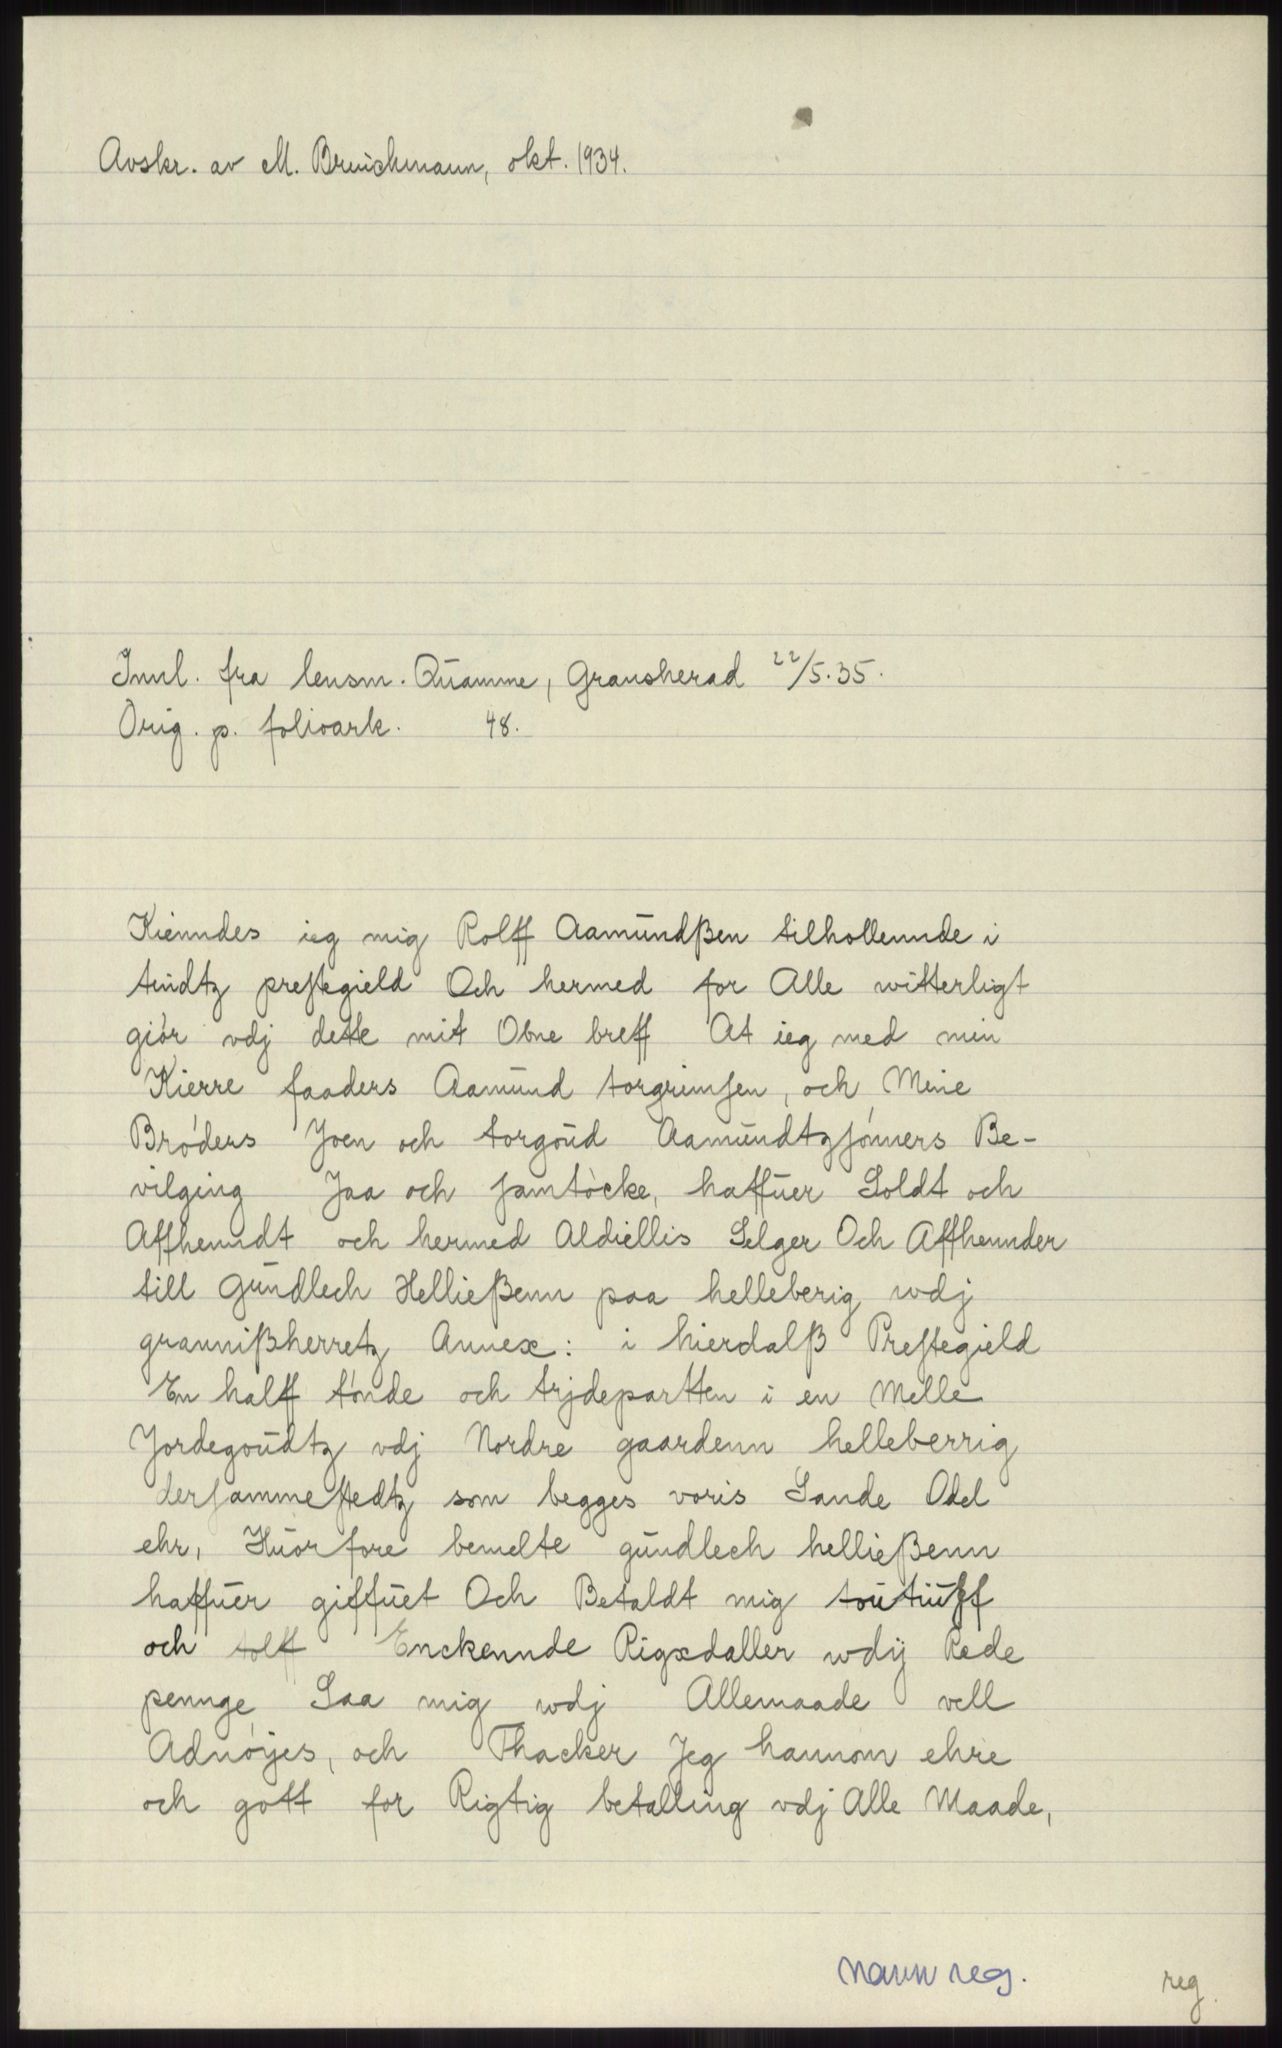 Avskr. av M. Bruichmann, okt. 1934.
Innl. fra lensm. Quamme, Gransherad 22/5.35.
Orig. p. folioark. 48.
Kienndes ieg mig Rolff Aamundßen tilhollennde i
tindtz prestegield Och hermed for Alle witterligt
giør vdj dette mit Obne breff At ieg med min
Kierre faaders Aamund torgrimsen, och Mine
Brøders Joen och torgoud Aamundtzsønners Be-
vilging Jaa och samtøcke, haffuer Soldt och
Affhenndt och hermed Aldiellis Selger Och Affhennder
till Gundlech Helließenn paa helleberig wdj
grannißherretz Annex: i hierdalß Prestegield
En halff tønde och trjdepartten i en Melle
Jordegoudtz vdj Nordre gaardenn helleberrig
dersammestedtz som begges voris Sande Odel
ehr, Huorfore bemelte gundlech helließenn
haffuer giffuet Och Betaldt mig
och tolff Enckennde Rigxdaller wdij Rede
pennge Saa mig wdj Allemaade vell
Adnøyes, och Thacker Jeg hannom ehre
och gott for Rigtig betalling vdj Alle Maade,
navn reg.
reg.